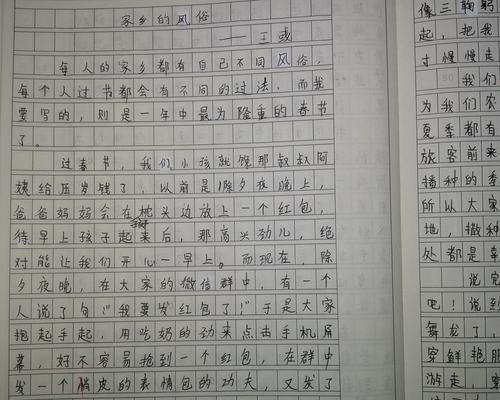 家乡的风俗
每人的家乡都有自己不同风俗,
每个人过节都会有不同的过法,而我
要写的,则是一年中最为隆重的春节
了。
过春节,我们小孩就馋那叔叔阿
姨给压岁钱了,以前是除夕夜晚上,
爸爸妈妈会在枕头边放上一个红包,
待早上孩子起来后,那高兴劲儿,绝
对能让我们开心一早上。而现在,除
夕夜晚,在大家的微信群中,有一个
人说了句“我要发红包了!”于是大家
抱起手起,用吃奶的劲来点击手机屏
幕,好不容易抢到一个红包,在群中
发一个俏皮的表情包的功夫,又发了
像三鞠躬
起,把我
寸慢慢走
我们
为我们农
夏季都有
放客前来
播种的季
所以大家
地,撒种
处都是幸
说完
吧!说到
舞龙了,
穿鲜艳服
游走,